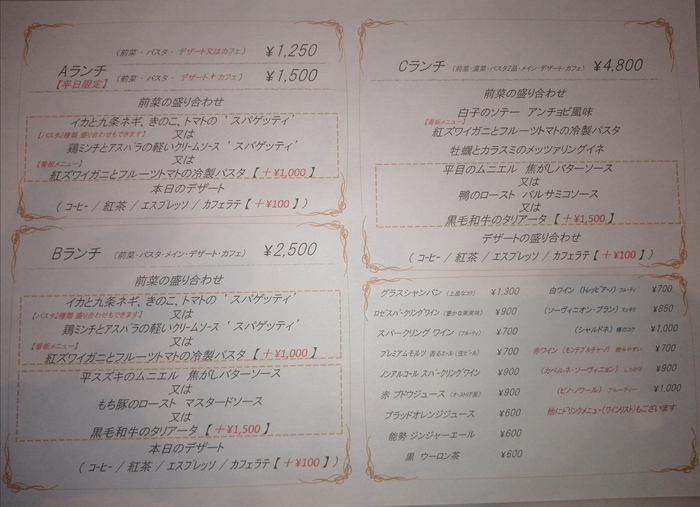 (前菜・パスタ・デザート又はカフェ) ¥1,250
Aランチ (前菜・パスタ・デザート+カフェ) ¥1,500
【平日限定】
前菜の盛り合わせ
イカと九条ネギ、きのこ、トマトの 'スパゲッティ'
【パスタ2種類 盛り合わせもできます】 又は
鶏ミンチとアスパラの軽いクリームソース 'スパゲッティ'
【看板メニュー】 又は
紅ズワイガニとフルーツトマトの冷製パスタ【+¥1,000】
本日のデザート
(コーヒー / 紅茶 / エスプレッソ / カフェラテ【+¥100】)
Bランチ (前菜・パスタ・メイン・デザート・カフェ) ¥2,500
前菜の盛り合わせ
イカと九条ネギ、きのこ、トマトの 'スパゲッティ'
【パスタ2種類 盛り合わせもできます】 又は
鶏ミンチとアスパラの軽いクリームソース 'スパゲッティ'
【看板メニュー】 又は
紅ズワイガニとフルーツトマトの冷製パスタ【+¥1,000】
平スズキのムニエル 焦がしバターソース
又は
もち豚のロースト マスタードソース
又は
黒毛和牛のタリアータ【+¥1,500】
本日のデザート
(コーヒー / 紅茶 / エスプレッソ / カフェラテ【+¥100】)
Cランチ (前菜・温菜・パスタ2品・メイン・デザート・カフェ) ¥4,800
前菜の盛り合わせ
白子のソテー アンチョビ風味
【看板メニュー】
紅ズワイガニとフルーツトマトの冷製パスタ
牡蠣とカラスミのメッツァリングイネ
平目のムニエル 焦がしバターソース
又は
鴨のロースト バルサミコソース
又は
黒毛和牛のタリアータ【+¥1,500】
デザートの盛り合わせ
(コーヒー / 紅茶 / エスプレッソ / カフェラテ【+¥100】)
グラスシャンパン (上品なコク) ¥1,300
ロゼスパークリングワイン (豊かな果実味) ¥900
スパークリング ワイン (フルーティ) ¥700
プレミアムモルツ 香るエール (生ビール) ¥700
ノンアルコール スパークリングワイン ¥900
赤 ブドウジュース (オーストリア産) ¥900
ブラッドオレンジジュース ¥600
能勢 ジンジャーエール ¥600
黒 ウーロン茶 ¥600
白ワイン (トレッビアーノ) フルーティ ¥700
(ソーヴィニオン・ブラン) スッキリ ¥850
(シャルドネ) 樽のコク ¥1,000
赤ワイン (モンテプルチャーノ) 飲みやすい ¥700
(カベルネ・ソーヴィニョン) しっかり ¥900
(ピノ・ノワール) フルーティー ¥1,000
他にドリンクメニュー(ワインリスト)もございます